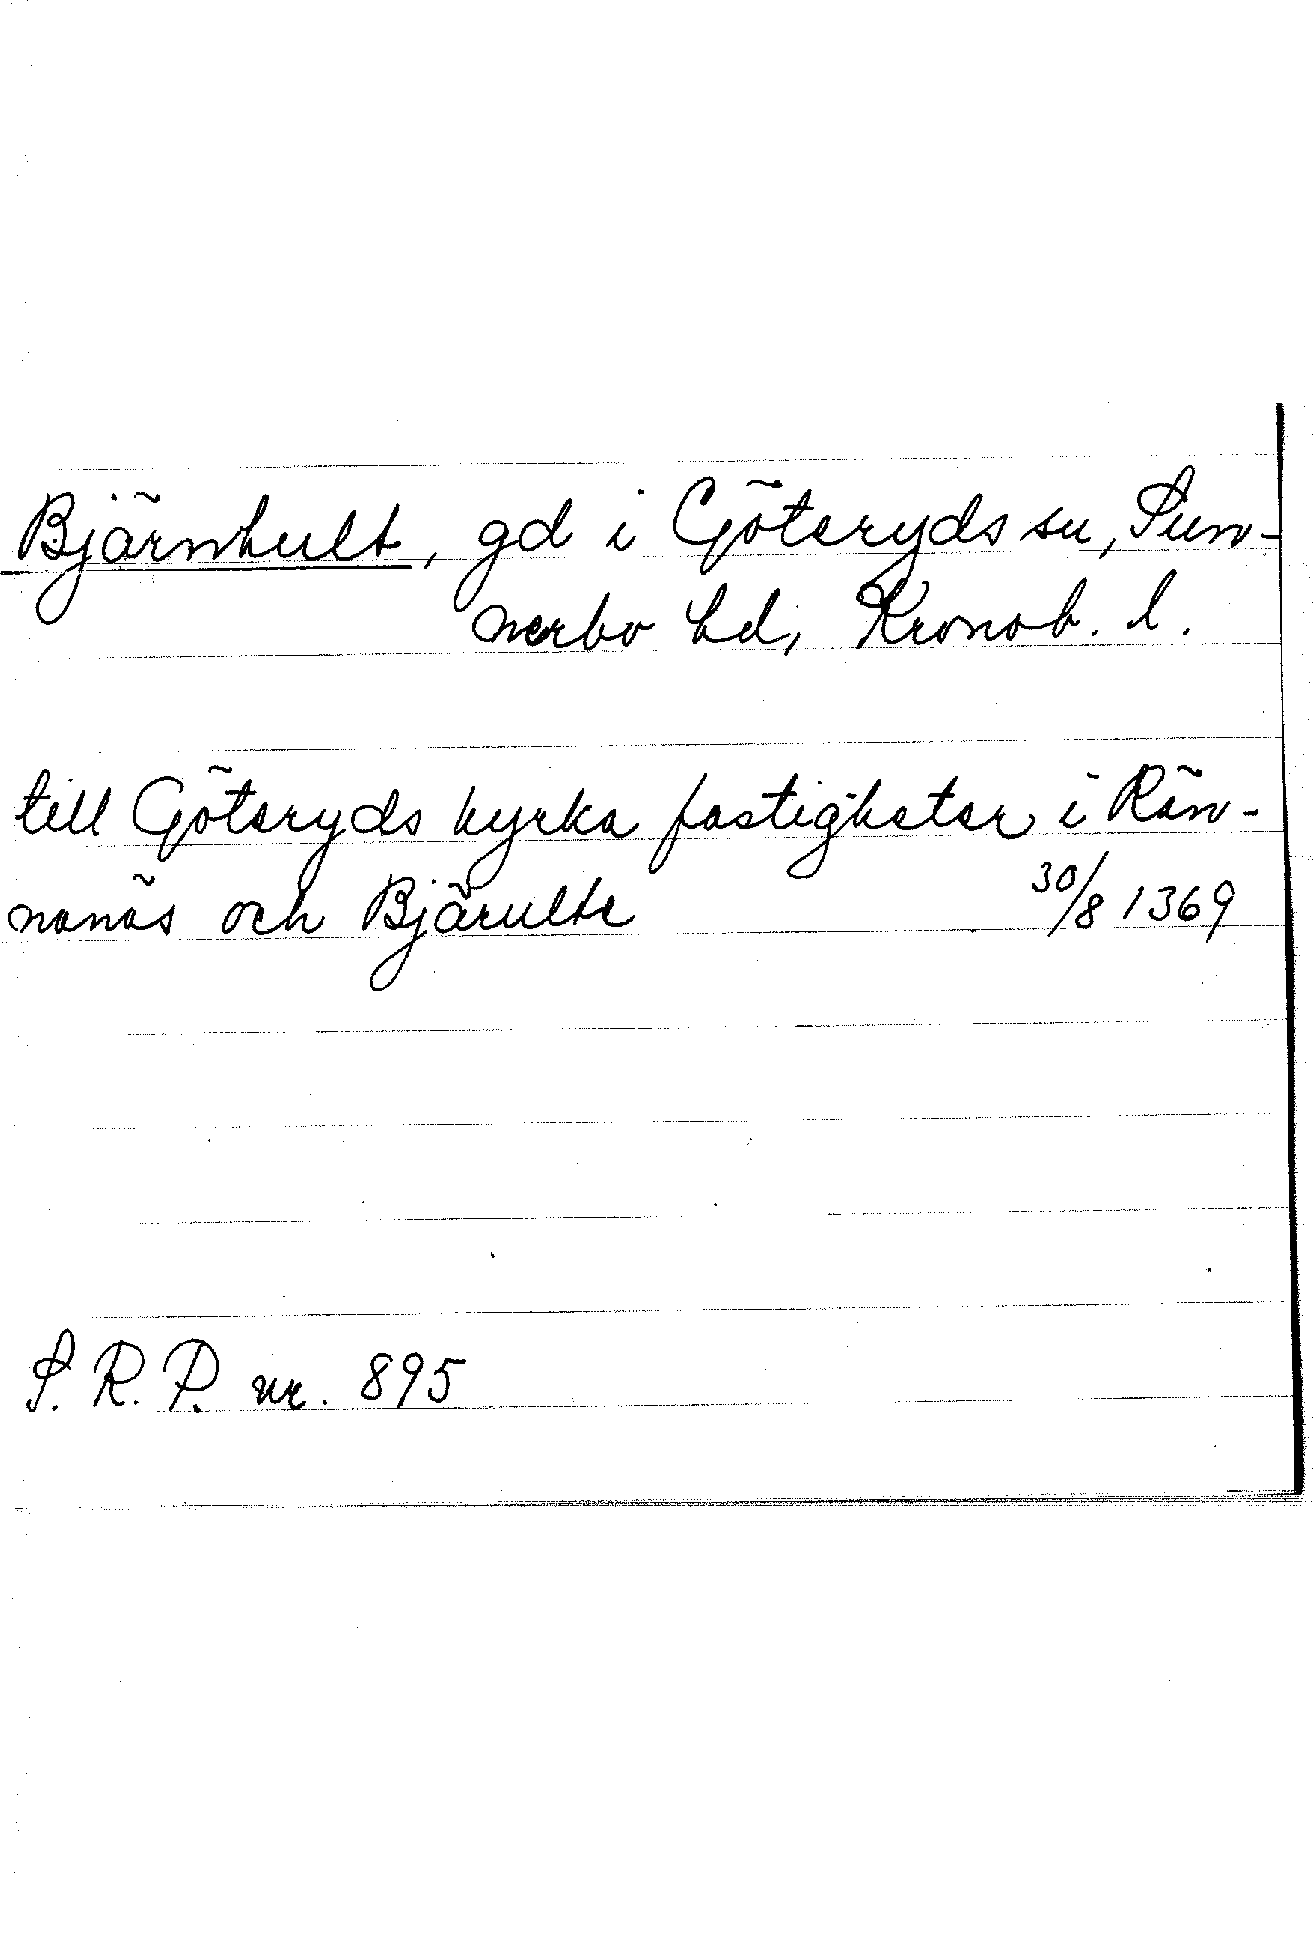 Bjärnhult, gd i Göteryds sn, Sun-
nerbo hd, Kronob. l.
till Göteryds kyrka fastigheter i Rän-
nanäs och Bjärulte 30/8 1369
S. R. P. nr. 895